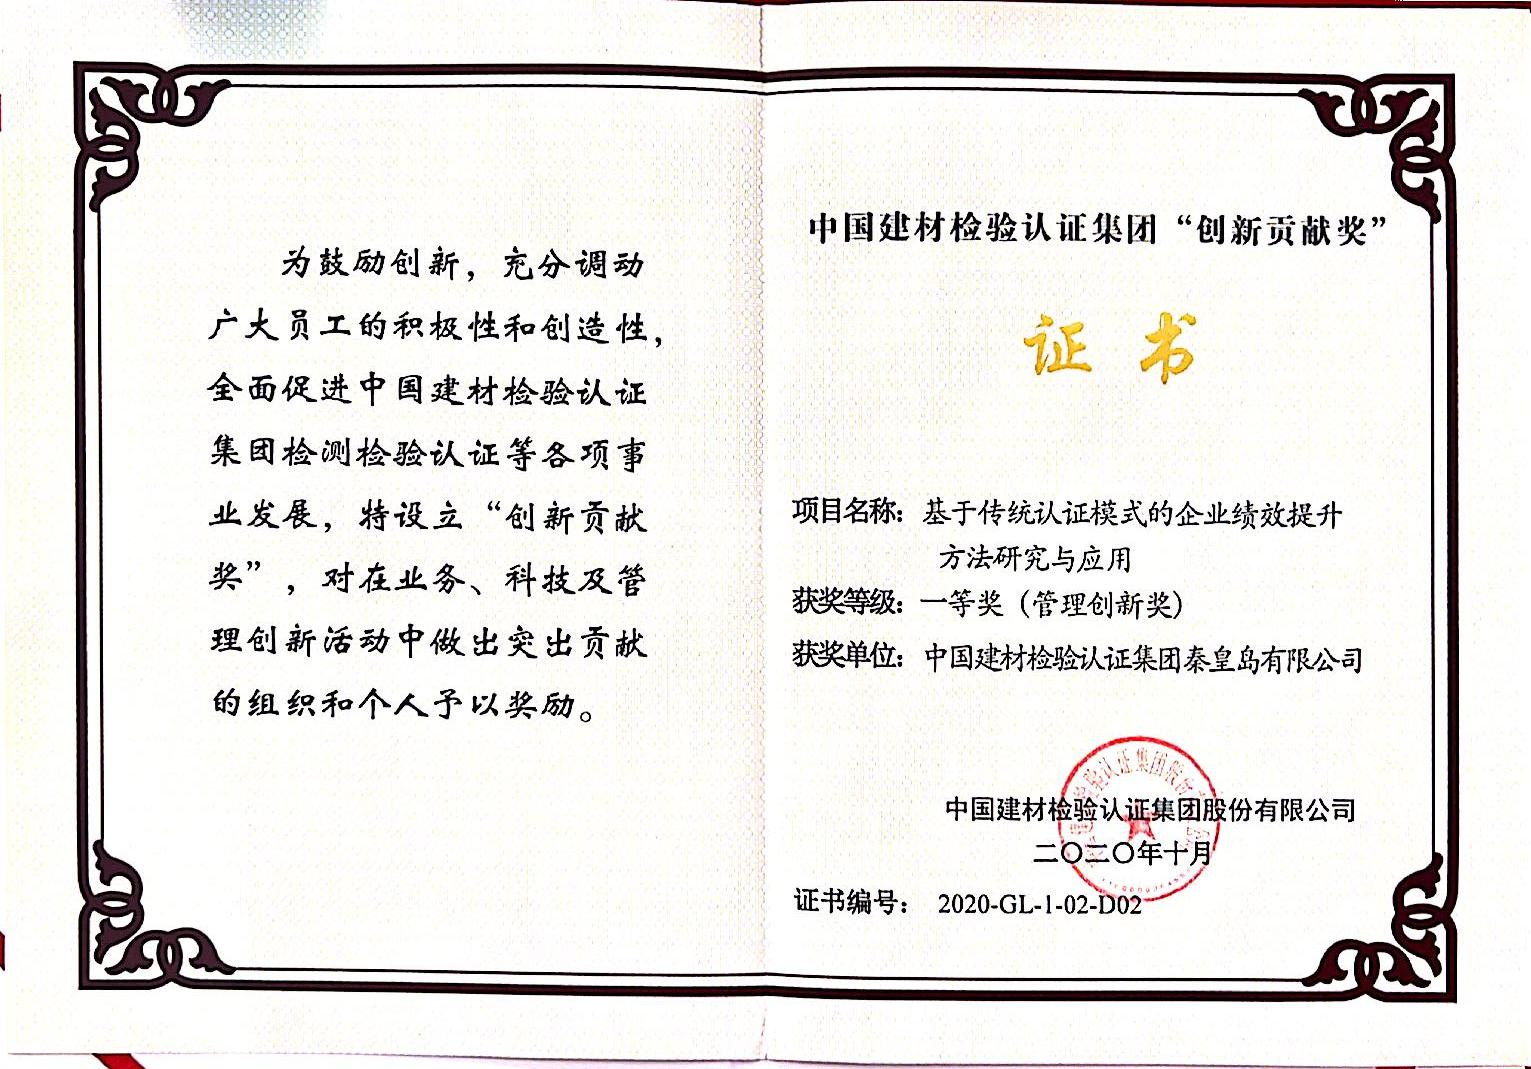 为鼓励创新，充分调动
广大员工的积极性和创造性，
全面促进中国建材检验认证
集团检测检验认证等各项事
业发展，特设立“创新贡献
奖”，对在业务、科技及管
理创新活动中做出突出贡献
的组织和个人予以奖励。
中国建材检验认证集团“创新贡献奖”
证书
项目名称：基于传统认证模式的企业绩效提升
方法研究与应用
获奖等级：一等奖（管理创新奖）
获奖单位：中国建材检验认证集团秦皇岛有限公司
中国建材检验认证集团股份有限公司
二〇二〇年十月
证书编号： 2020-GL-1-02-D02